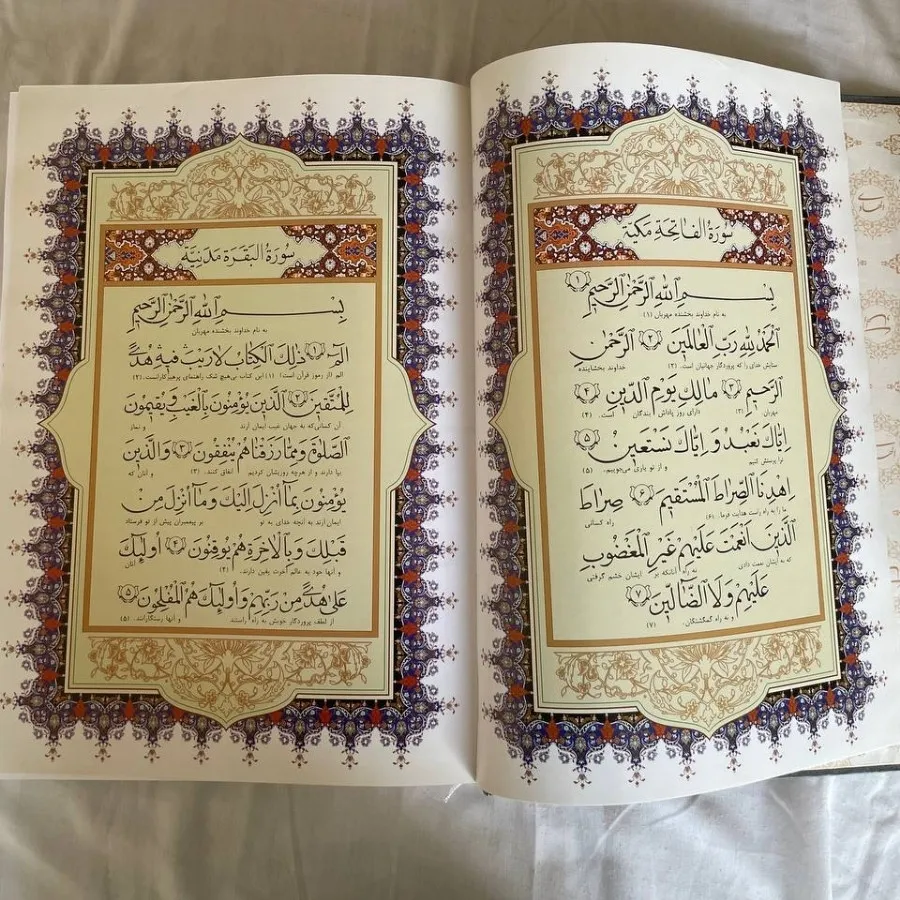 سُورَةُ الفَاتِحَةِ مَكِّيَّة
بِسْمِ اللهِ الرَّحْمٰنِ الرَّحِيمِ ۱
به نام خداوند بخشنده مهربان (۱)
اَلْحَمْدُ لِلّٰهِ رَبِّ الْعَالَمِينَ ۲ اَلرَّحْمٰنِ
ستایش خدای را که پروردگار جهانیان است. (۲) خداوند بخشاینده
الرَّحِيمِ ۳ مَالِكِ يَوْمِ الدِّينِ ۴
مهربان (۳) دارای روز پاداش بندگان است. (۴)
اِيَّاكَ نَعْبُدُ وَ اِيَّاكَ نَسْتَعِينُ ۵
ترا پرستش کنیم و از تو یاری می‌جوییم. (۵)
اِهْدِنَا الصِّرَاطَ الْمُسْتَقِيمَ ۶ صِرَاطَ
ما را به راه راست هدایت فرما. (۶) راه کسانی
الَّذِينَ اَنْعَمْتَ عَلَيْهِمْ غَيْرِ الْمَغْضُوبِ
که به آینان نعمت دادی نه راه آنانکه بر ایشان خشم گرفتی
عَلَيْهِمْ وَلَا الضَّالِّينَ ۷
و نه راه گمگشتگان. (۷)
سُورَةُ الْبَقَرَةِ مَدَنِيَّة
بِسْمِ اللهِ الرَّحْمٰنِ الرَّحِيمِ
به نام خداوند بخشنده مهربان
الٓمٓ ۱ ذٰلِكَ الْكِتَابُ لَا رَيْبَ فِيهِ هُدًى
الم (از رموز قرآن است) (۱) این کتاب بی‌هیچ شک راهنمای پرهیزکاراست. (۲)
لِلْمُتَّقِينَ ۲ الَّذِينَ يُؤْمِنُونَ بِالْغَيْبِ وَ يُقِيمُونَ
آن کسانی‌که به جهان غیب ایمان آرند و نماز
الصَّلٰوةَ وَ مِمَّا رَزَقْنَاهُمْ يُنْفِقُونَ ۳ وَالَّذِينَ
بپا دارند و از هرچه روزیشان کردیم انفاق کنند. (۳) و آنان که
يُؤْمِنُونَ بِمَا اُنْزِلَ اِلَيْكَ وَ مَا اُنْزِلَ مِنْ
ایمان آرند به آنچه خدای به تو بر پیغمبران پیش از تو فرستاد
قَبْلِكَ وَ بِالْاٰخِرَةِ هُمْ يُوقِنُونَ ۴ اُولٰئِكَ
و آنها خود به عالم آخرت یقین دارند. (۴) آنان
عَلٰى هُدًى مِنْ رَبِّهِمْ وَ اُولٰئِكَ هُمُ الْمُفْلِحُونَ ۵
از لطف پروردگار خویش به راه راستند و آنها رستگارانند. (۵)